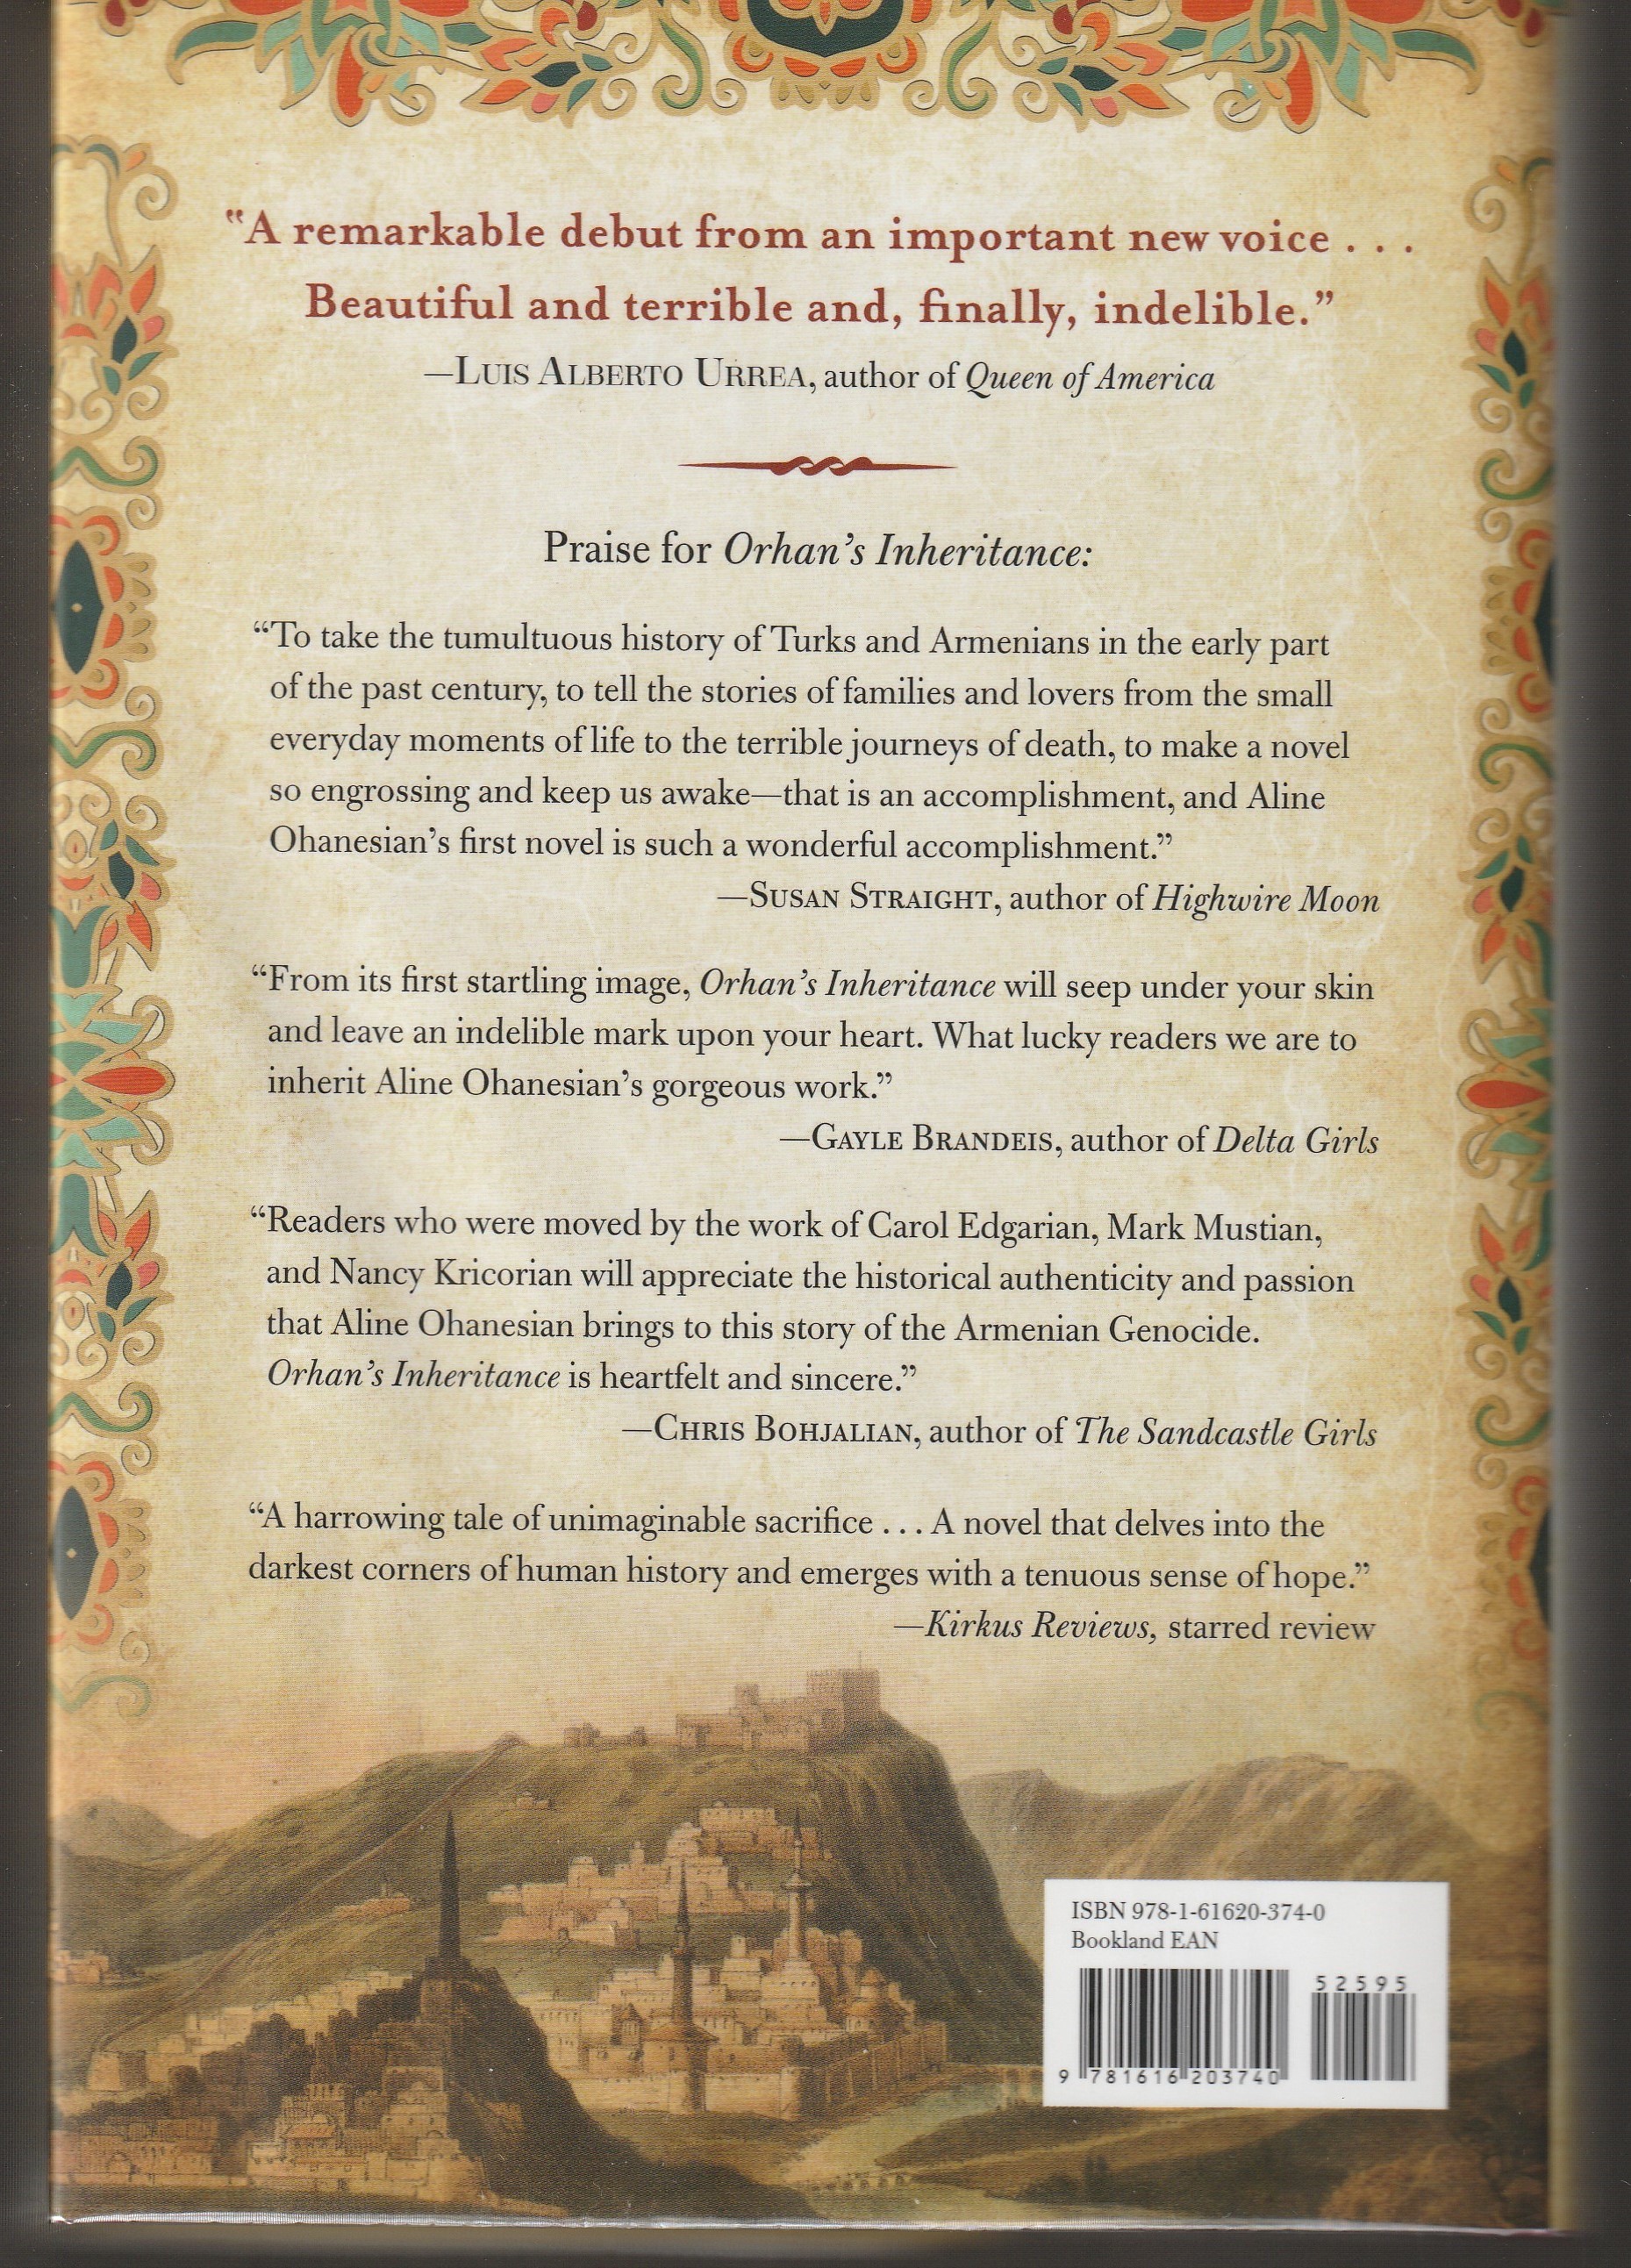 "A remarkable debut from an important new voice . . .
Beautiful and terrible and, finally, indelible."
—Luis Alberto Urrea, author of Queen of America
Praise for Orhan's Inheritance:
"To take the tumultuous history of Turks and Armenians in the early part
of the past century, to tell the stories of families and lovers from the small
everyday moments of life to the terrible journeys of death, to make a novel
so engrossing and keep us awake—that is an accomplishment, and Aline
Ohanesian's first novel is such a wonderful accomplishment."
—Susan Straight, author of Highwire Moon
"From its first startling image, Orhan's Inheritance will seep under your skin
and leave an indelible mark upon your heart. What lucky readers we are to
inherit Aline Ohanesian's gorgeous work."
—Gayle Brandeis, author of Delta Girls
"Readers who were moved by the work of Carol Edgarian, Mark Mustian,
and Nancy Kricorian will appreciate the historical authenticity and passion
that Aline Ohanesian brings to this story of the Armenian Genocide.
Orhan's Inheritance is heartfelt and sincere."
—Chris Bohjalian, author of The Sandcastle Girls
"A harrowing tale of unimaginable sacrifice . . . A novel that delves into the
darkest corners of human history and emerges with a tenuous sense of hope."
—Kirkus Reviews, starred review
ISBN 978-1-61620-374-0
Bookland EAN
52595
9 781616 203740